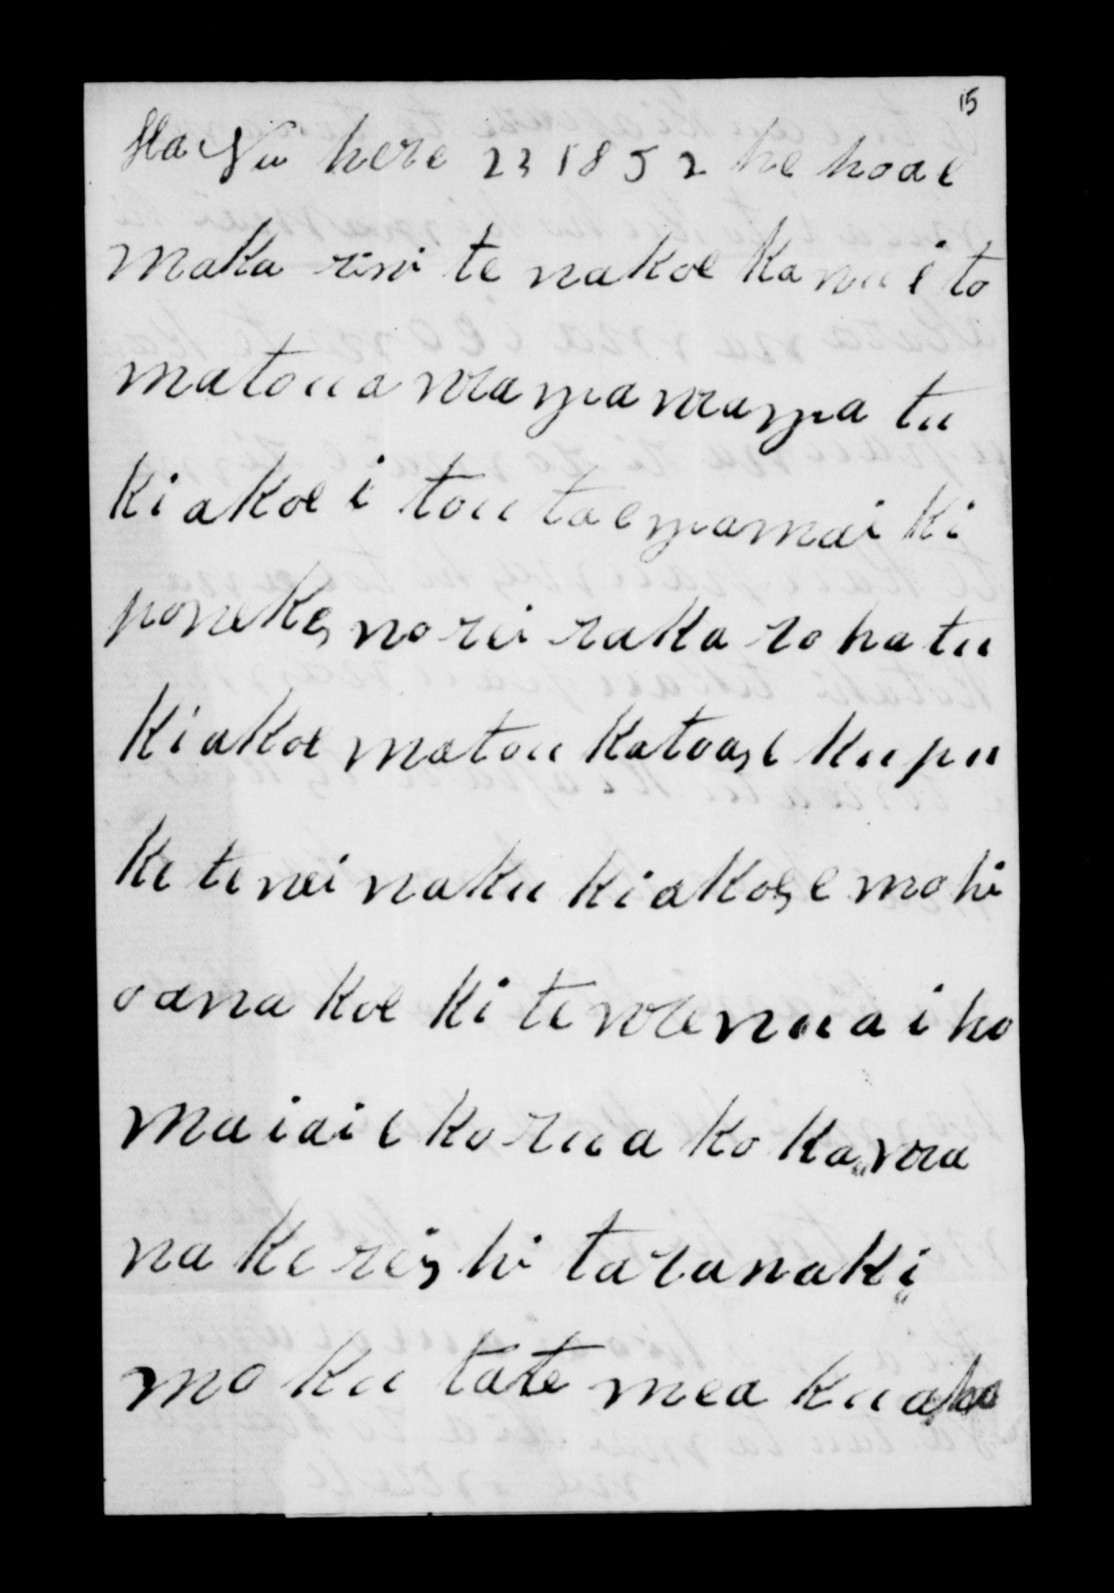 15
Ha Nu here 23 1852 he hoa e
maka rini te na koe Ka nui to
matou a wagawaga tu
Ki akoe i tou taegamai Ki
poneke, no rei raka ro ha tu
Ki akoe matou Katoa, e Ku pu
Ke te nei naku Ki akoe, e mo hi
o ana koe Ki te wenua i ho
maiai e ko rua ko Ka,, wa
na Ke rei, hi taranaki,,
mo ku tate mea kua